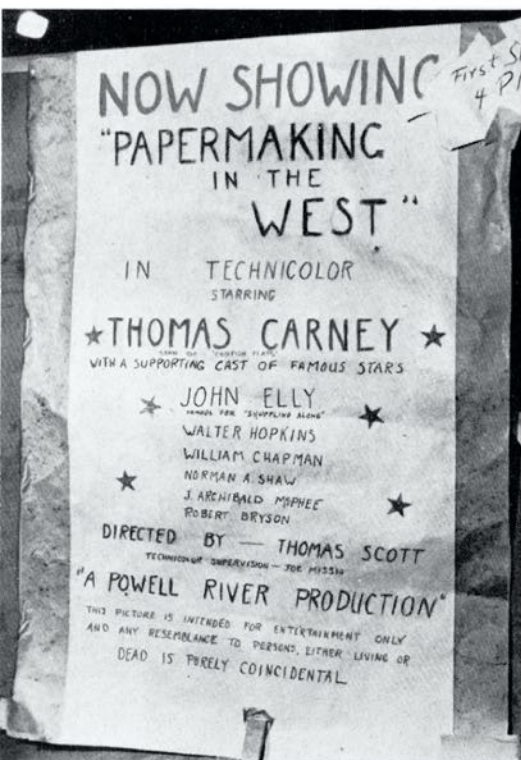 NOW SHOWING
First S
4 P
"PAPERMAKING
IN THE
WEST"
IN TECHNICOLOR
STARRING
THOMAS CARNEY
WITH A SUPPORTING CAST OF FAMOUS STARS
JOHN ELLY
FAMOUS FOR "SHUFFLING ALONG"
WALTER HOPKINS
WILLIAM CHAPMAN
NORMAN A. SHAW
J. ARCHIBALD McPHEE
ROBERT BRYSON
DIRECTED BY — THOMAS SCOTT
TECHNICOLOR SUPERVISION — JOE
"A POWELL RIVER PRODUCTION"
THIS PICTURE IS INTENDED FOR ENTERTAINMENT ONLY
AND ANY RESEMBLANCE TO PERSONS, EITHER LIVING OR
DEAD IS PURELY COINCIDENTAL